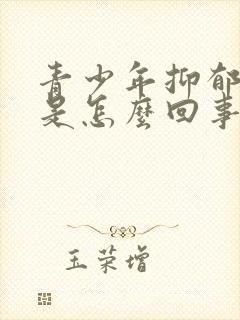 青少年抑郁
是怎麼回事
玉荣增